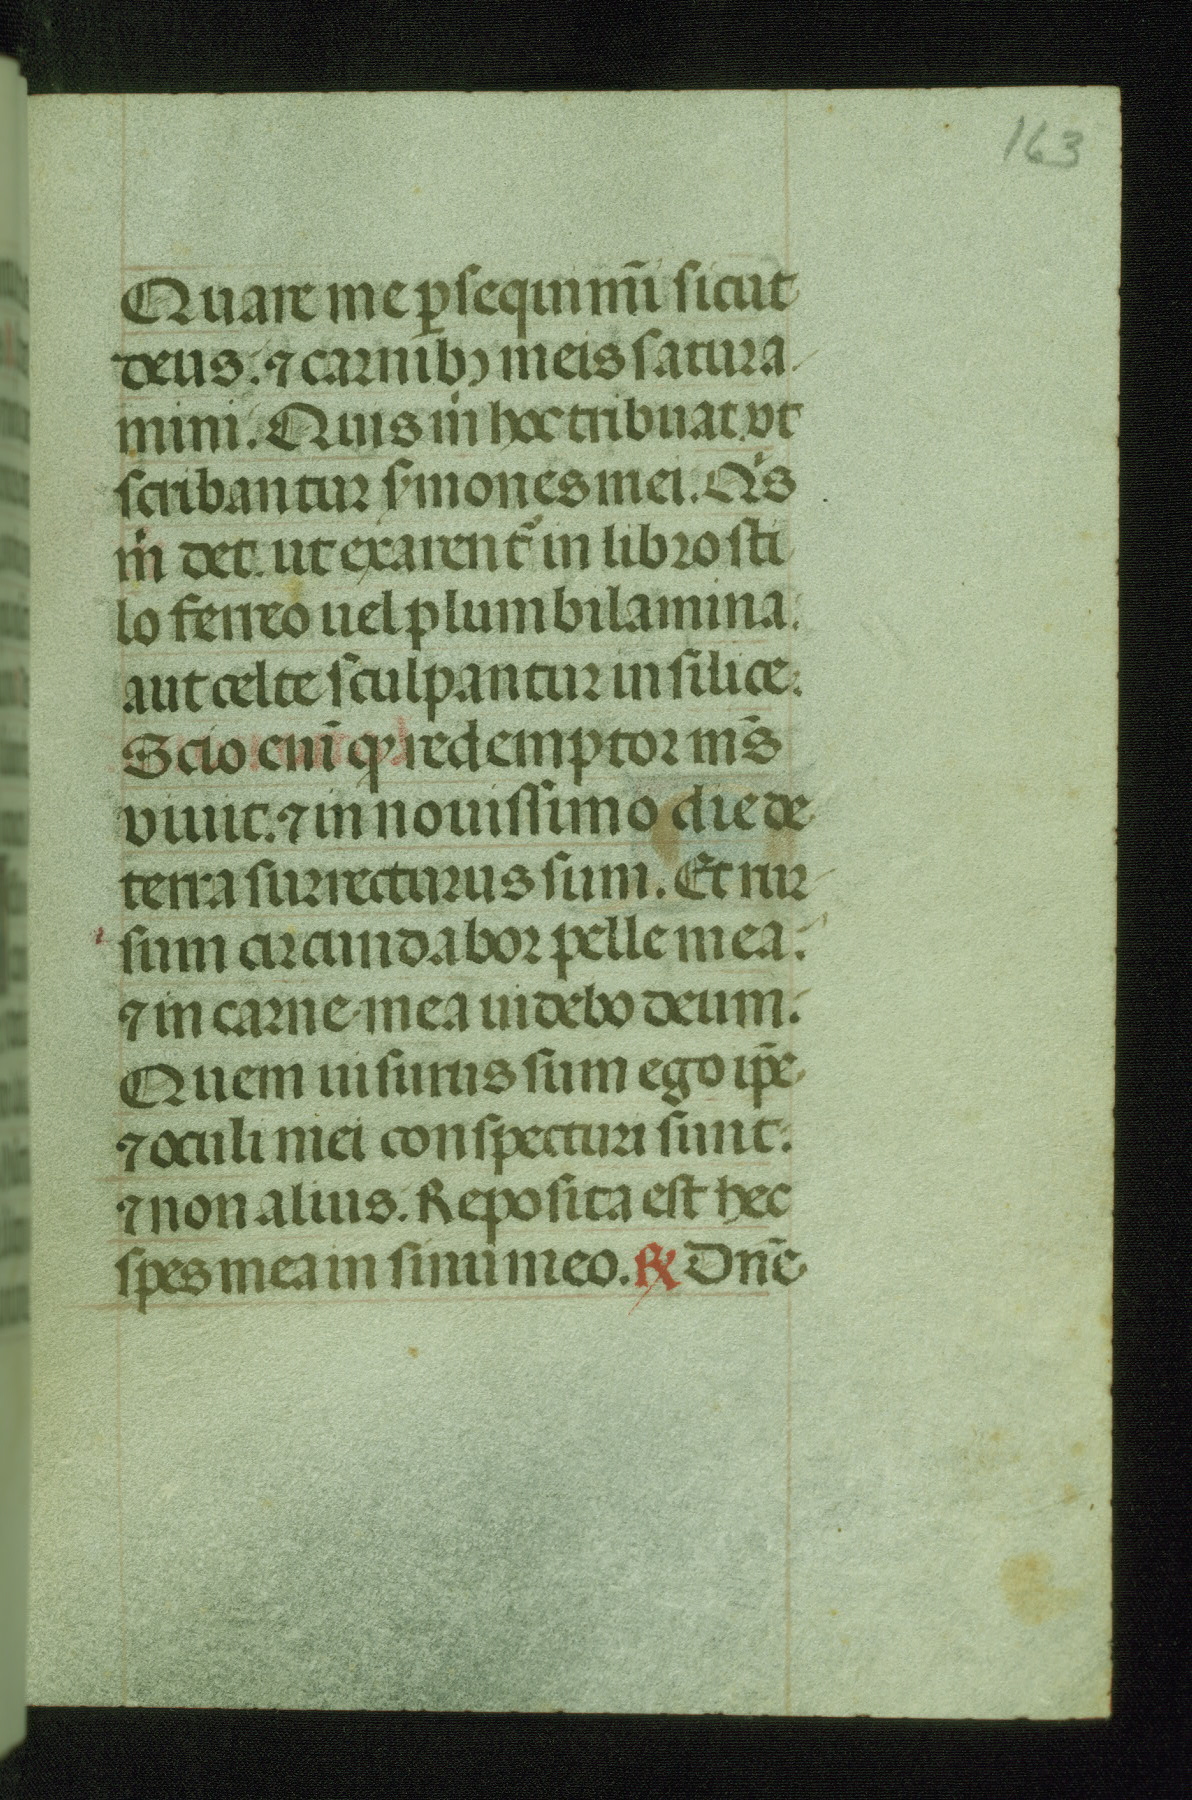 163
Quare me ꝑsequimĩ sicut
deus. ⁊ carnibꝫ meis satura
mini. Quis m̃ hoc tribuat. vt
scribantur sẽmones mei. Qͥs
m̃ det. ut exarent᷑ in libro sti
lo ferreo uel plumbi lamina.
aut celte sculpantur in silice.
Scio enĩ ꝙ redemptor mr̃s
viuit. ⁊ in nouissimo die de
terra surrecturus sum. Et rur
sum circumdabor pelle mea:
⁊ in carne mea uidebo deum.
Quem uisurus sum ego ip̃e
⁊ oculi mei conspecturi sunt:
⁊ non alius. Reposita est hec
spes mea in sinu meo. ℟ Dñe